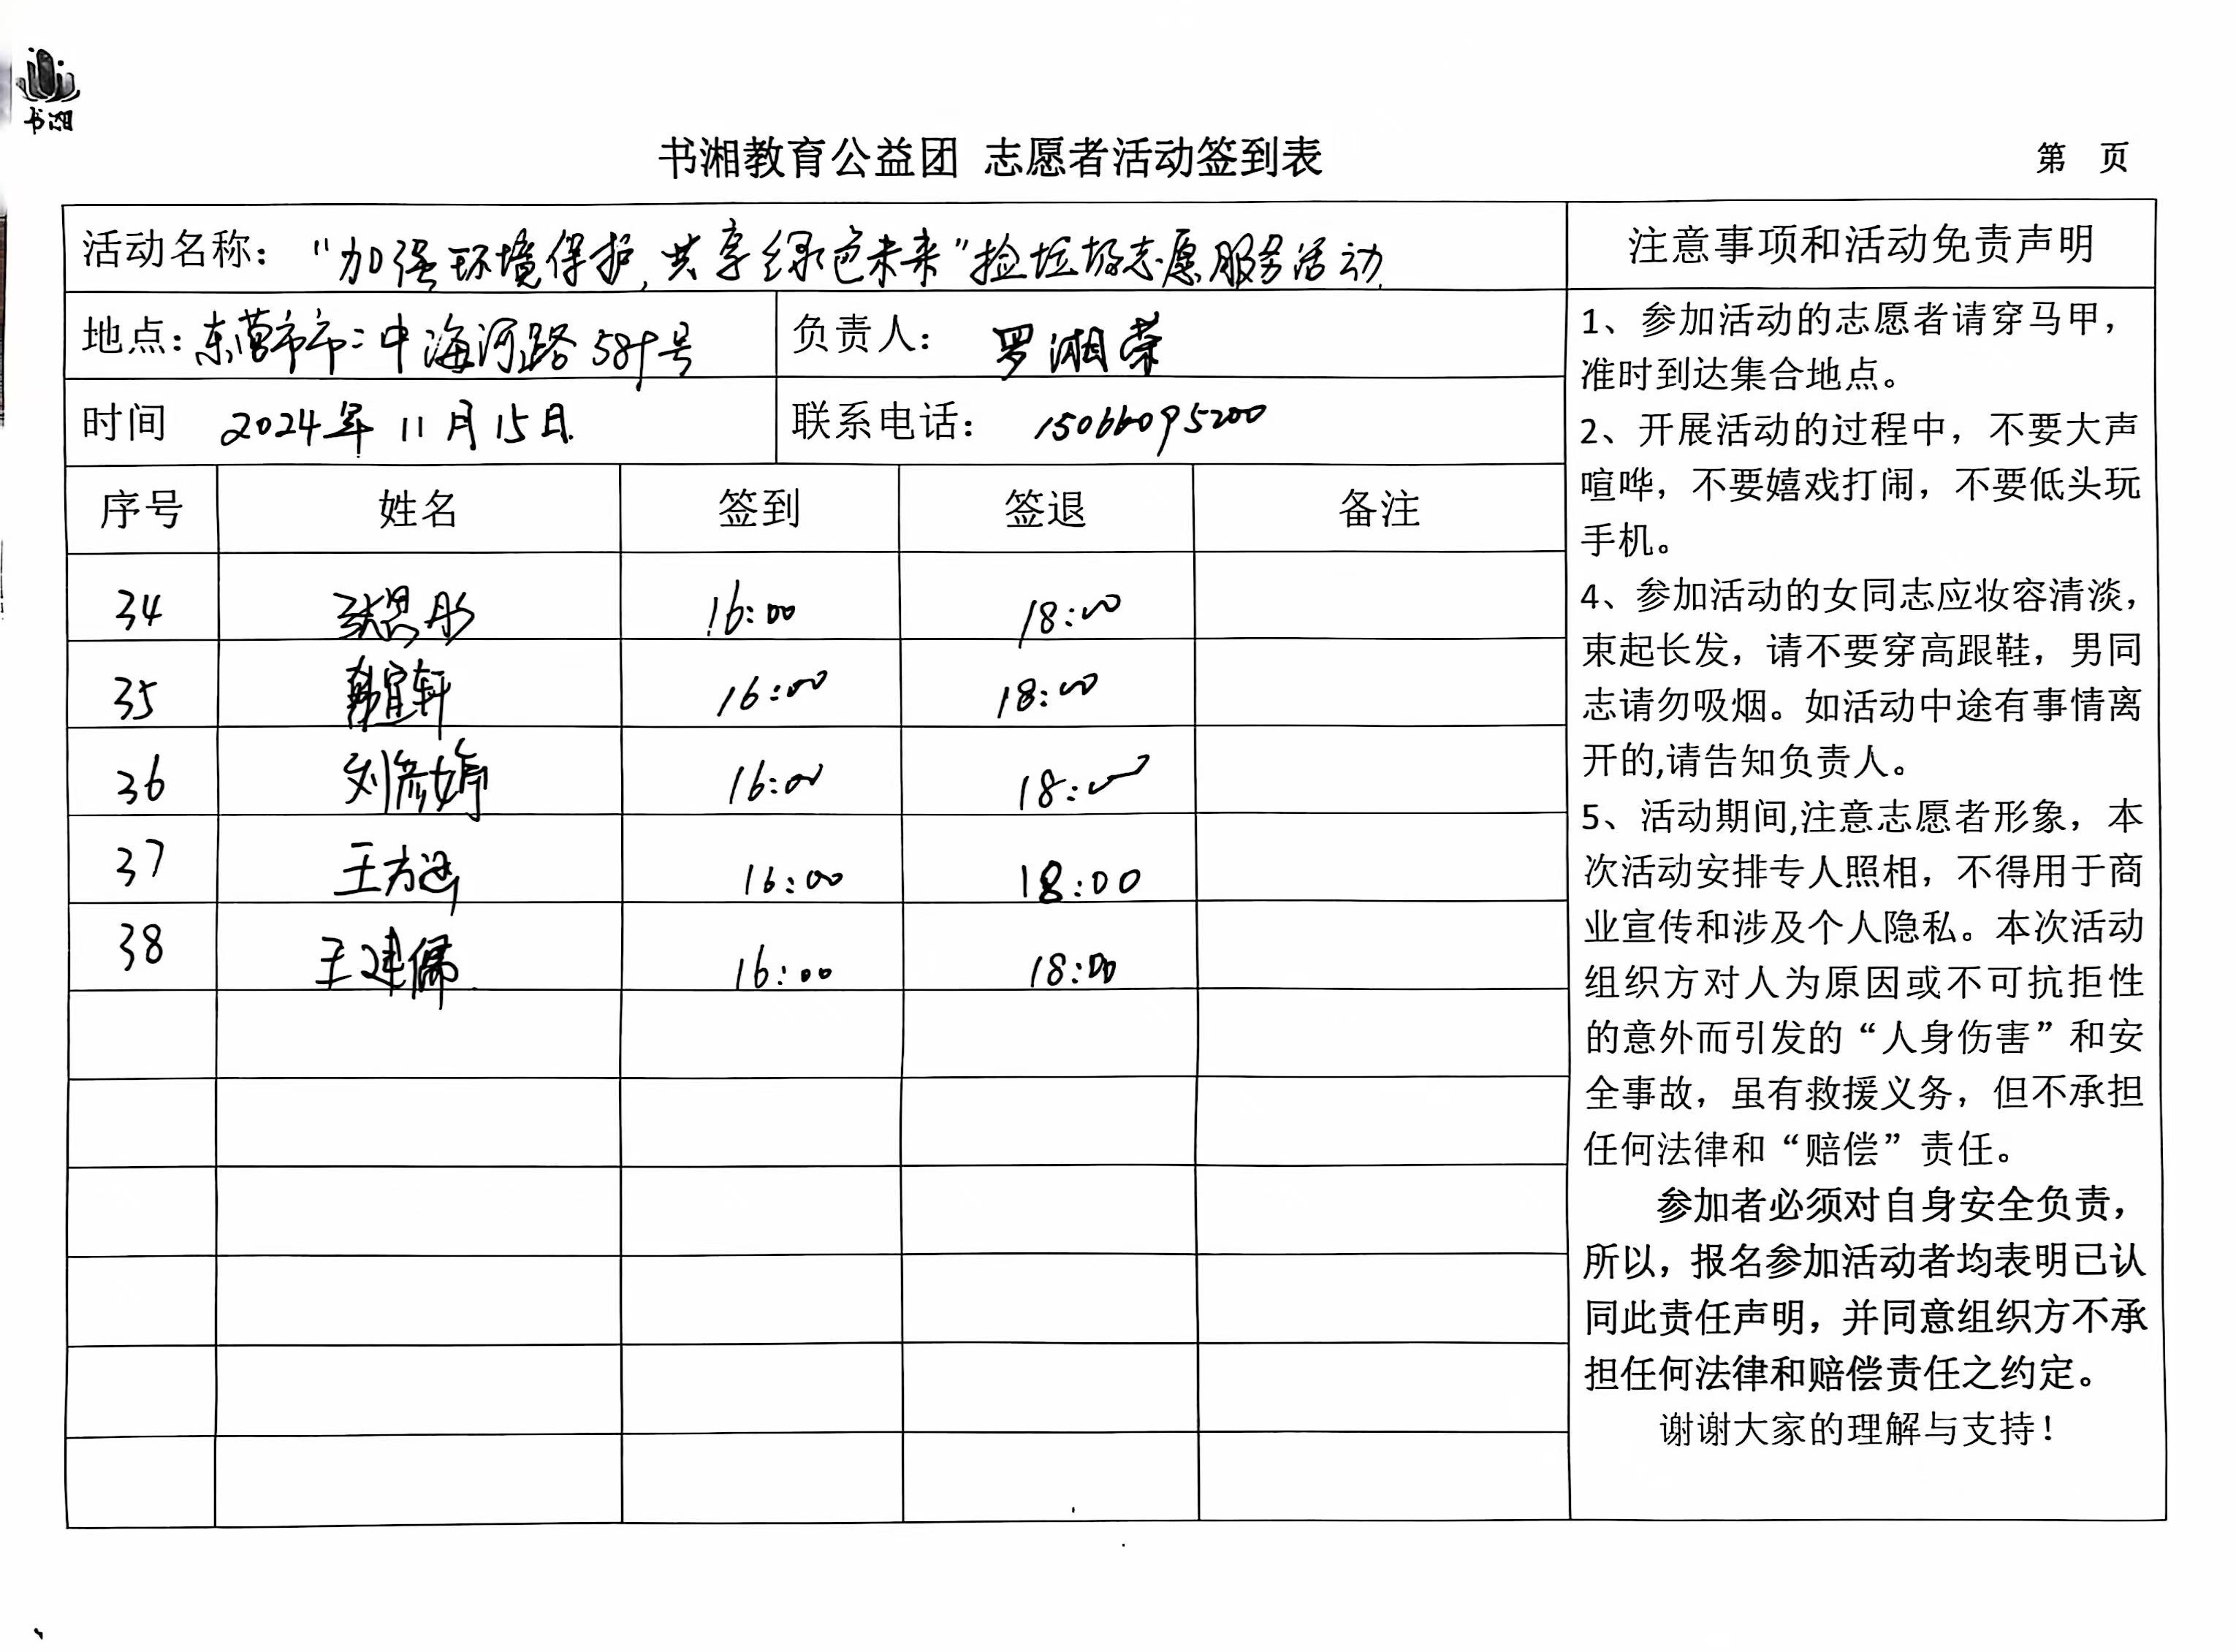 书湘
书湘教育公益团 志愿者活动签到表
第 页
活动名称：“加强环境保护,共享绿色未来”捡垃圾志愿服务活动.
地点：东营市市二中海河路589号
负责人： 罗湘荣
时间 2024年11月15日.
联系电话： 15066095200
序号 姓名 签到 签退 备注
34 张思彤 16:00 18:00
35 宜轩 16:00 18:00
36 刘彦婷 16:00 18:00
37 王方涵 16:00 18:00
38 王建儒 16:00 18:00
注意事项和活动免责声明
1、参加活动的志愿者请穿马甲，
准时到达集合地点。
2、开展活动的过程中，不要大声
喧哗，不要嬉戏打闹，不要低头玩
手机。
4、参加活动的女同志应妆容清淡，
束起长发，请不要穿高跟鞋，男同
志请勿吸烟。如活动中途有事情离
开的,请告知负责人。
5、活动期间,注意志愿者形象，本
次活动安排专人照相，不得用于商
业宣传和涉及个人隐私。本次活动
组织方对人为原因或不可抗拒性
的意外而引发的“人身伤害”和安
全事故，虽有救援义务，但不承担
任何法律和“赔偿”责任。
参加者必须对自身安全负责，
所以，报名参加活动者均表明已认
同此责任声明，并同意组织方不承
担任何法律和赔偿责任之约定。
谢谢大家的理解与支持！